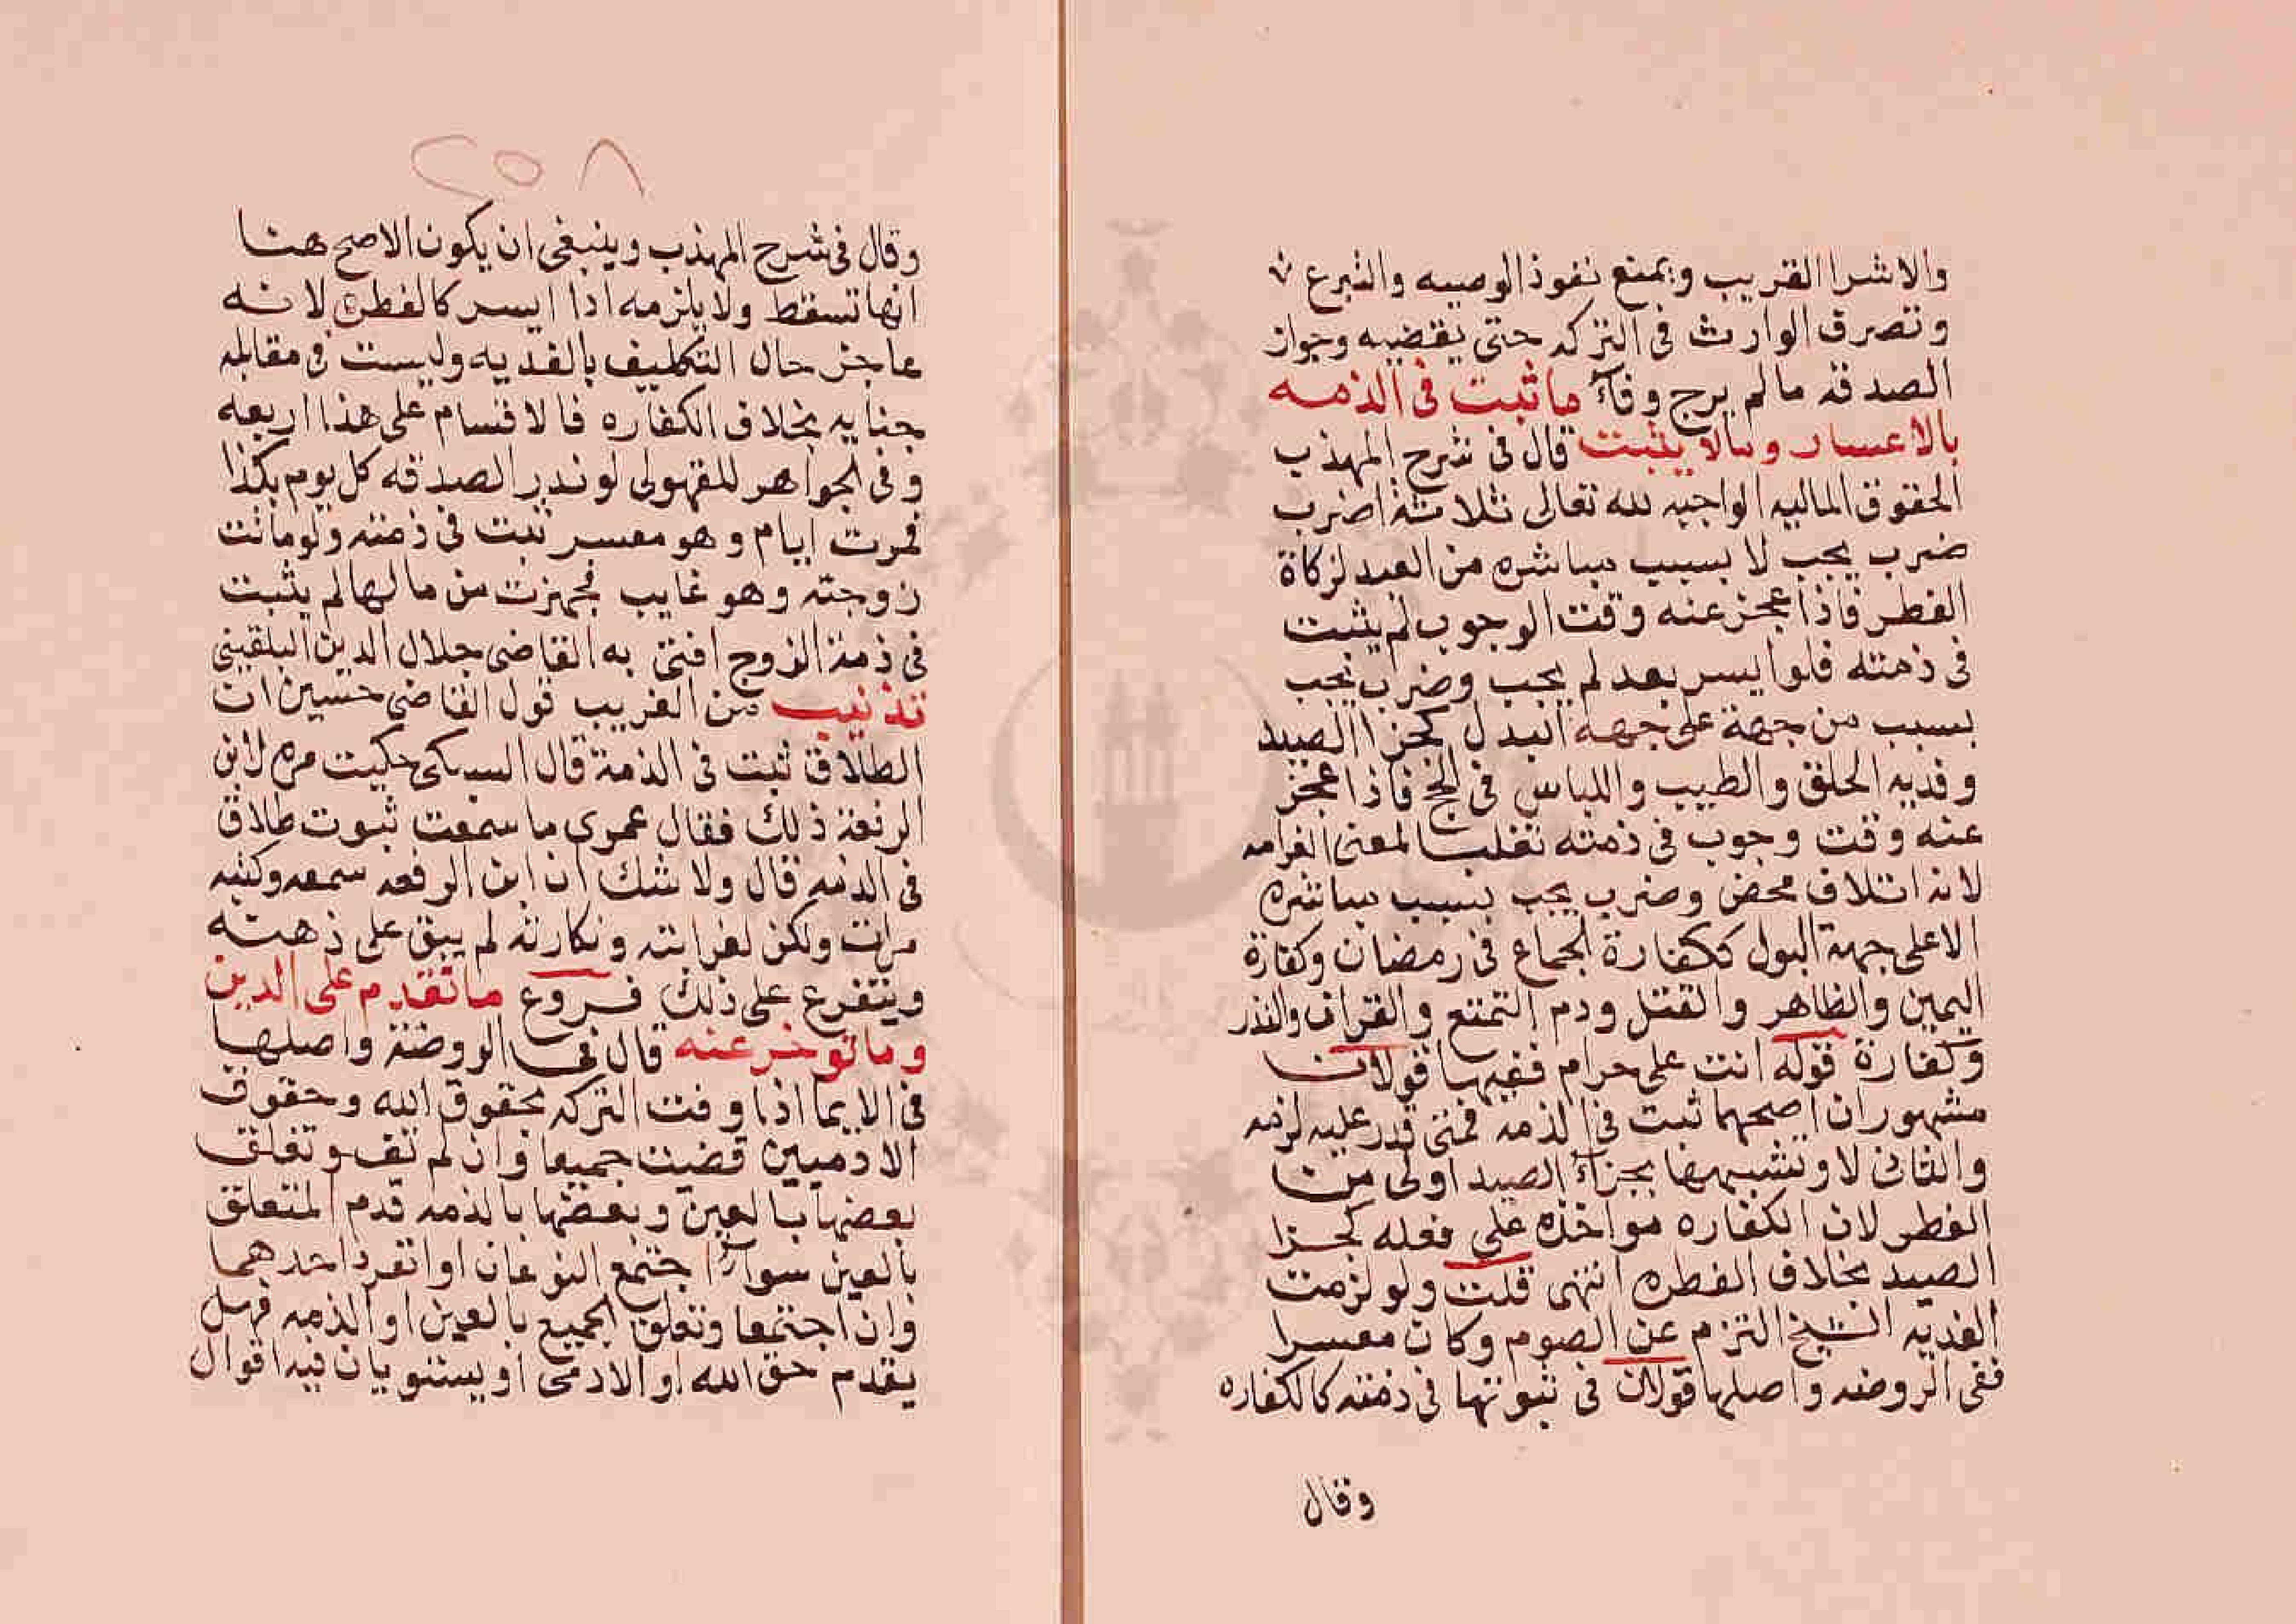 والاشرا القريب ويمنع نفوذ الوصيه والتبرع
وتصرف الوارث فى التركه حتى يقضيه وجواز
الصدقه مالم يرج وفآء ما ثبت فى الذمه
بالاعسار ومالا يثبت قال فى شرح المهذب
الحقوق الماليه الواجبه لله تعالى ثلاثة اضرب
ضرب يجب لا بسبب مباشره من العبد لزكاة
الفطر فاذا عجز عنه وقت الوجوب لم يثبت
فى ذمته فلو ايسر بعد لم يجب وضرب يجب
بسبب من جهة على جهه البدل كجزا الصيد
وفديه الحلق والطيب واللباس فى الحج فاذا عجز
عنه وقت وجوب فى ذمته تغليبا لمعنى الغرامه
لانه اتلاف محض وضرب يجب بسبب مباشره
الاعلى جهة البول ككفارة الجماع فى رمضان وكفارة
اليمين والظاهر والقتل ودم التمتع والقران والنذر
وكفارة قوله انت على حرام ففيها قولان
مشهوران اصحهما ثبت فى الذمه فمتى قدر عليه لزمه
والثانى لا وتشبيهها بجزآء الصيد اولى من
الفطر لان الكفاره مواخذه على فعله كجزا
الصيد بخلاف الفطره انتهى قلت ولو لزمت
الفديه الشيخ التزم عن الصوم وكان معسرا
ففى الروضه واصلها قولان فى ثبوتها فى ذمته كالكفاره
وقال
٢٥٨
وقال فى شرح المهذب وينبغى ان يكون الاصح هنا
انها تسقط ولا يلزمه اذا ايسر كالفطره لانه
عاجز حال التكليف بالفديه وليست فى مقابله
جنايه بخلاف الكفاره فالاقسام على هذا اربعه
وفى الجواهر للقمولى لو نذر الصدقه كل يوم بكذا
فمرت ايام وهو معسر ثبت فى ذمته ولو ماتت
زوجته وهو غايب فجهزت من مالها لم يثبت
فى ذمة الزوج افتى به القاضى جلال الدين البلقينى
تذنيب من الغريب قول القاضى حسين ان
الطلاق ثبت فى الذمة قال السبكى حكيت مره لابن
الرفعة ذلك فقال عمرى ما سمعت ثبوت طلاق
فى الذمه قال ولا شك ان ابن الرفعه سمعه وكتبه
مرات ولكن لغرابته ونكارته لم يبق على ذهنه
ويتفرع على ذلك فروع ما تقدم على الدين
وما توخر عنه قال فى الروضة واصلها
فى الايما اذا وفت التركه بحقوق الله وحقوق
الادميين قضيت جميعا وان لم تف وتعلق
بعضها بالعين وبعضها بالذمه قدم المتعلق
بالعين سوآء اجتمع النوعان او انفرد احدهما
وان اجتمعا وتعلق الجميع بالعين او الذمه فهل
يقدم حق الله او الادمى او يستويان فيه اقوال